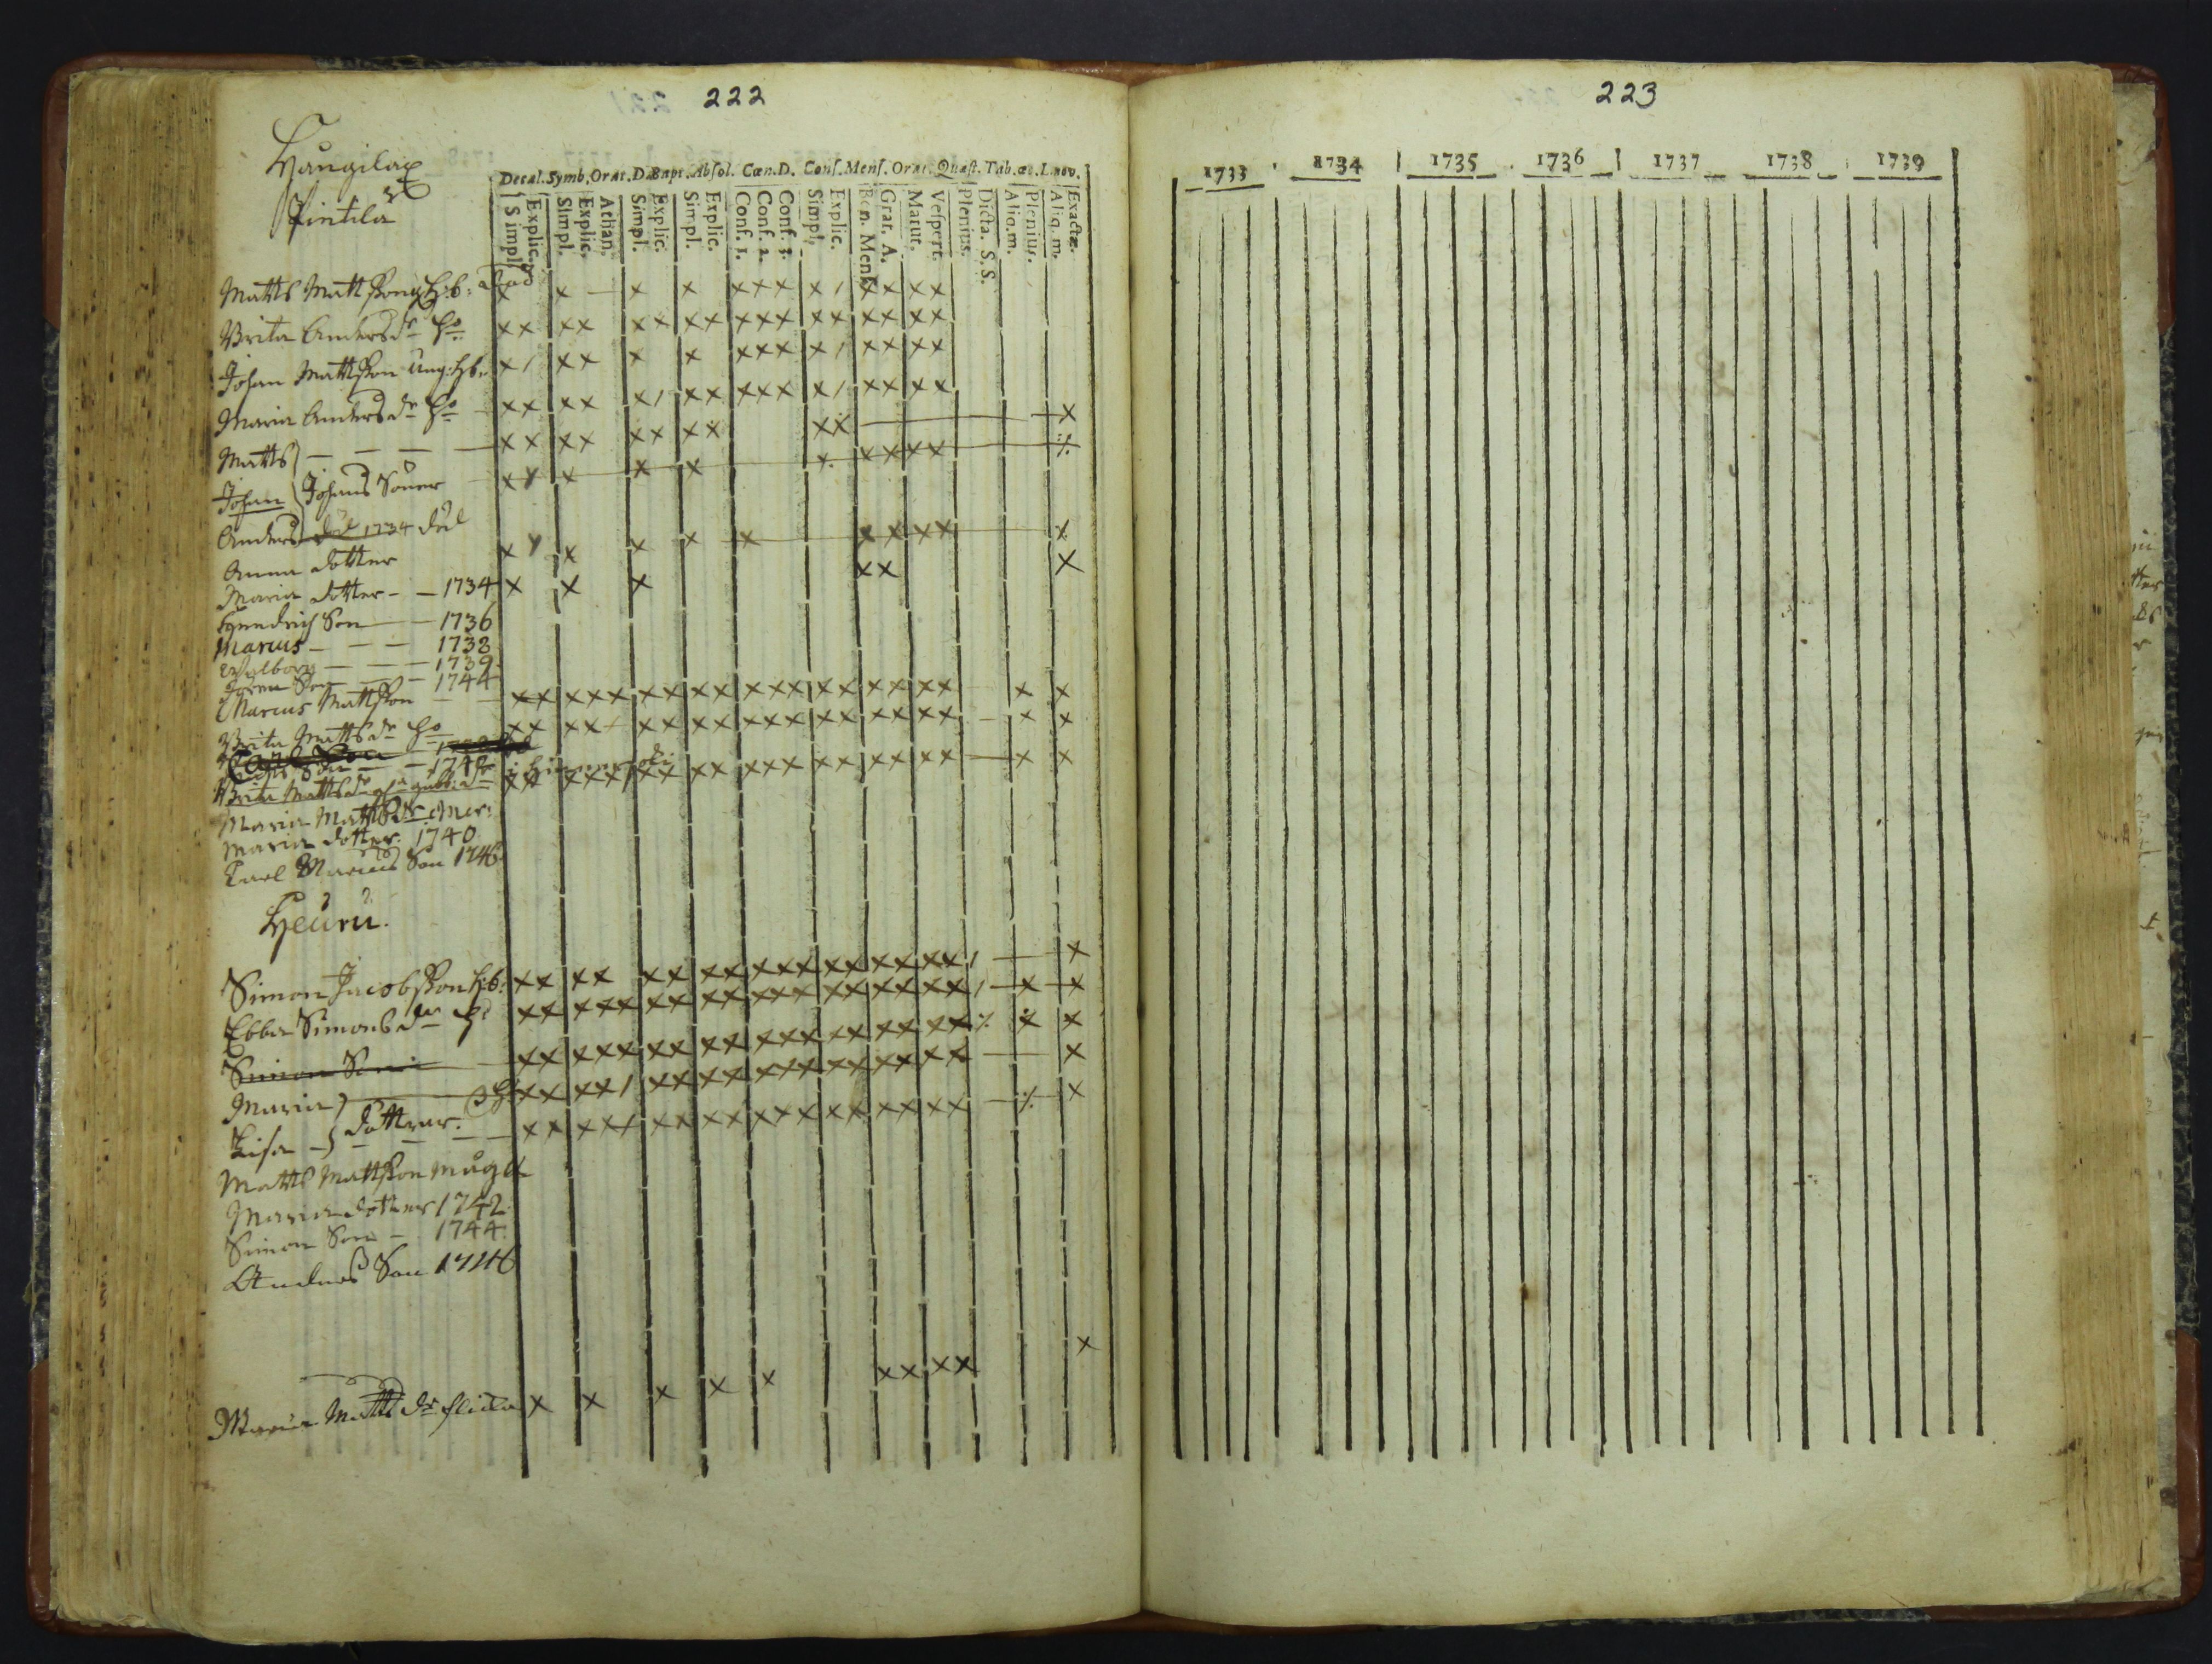 222
Haugilax
Pintila
Decal. Symb. Orat. D. Bapt. Absol. Cœn. D. Conf. Mens. Orat. Quæst. Tab. æc. L. nov.
Simpl. Explic. Simpl. Explic. Athan. Simpl. Explic. Simpl. Explic. Conf. 1. Conf. 2. Conf. 3. Simpl. Explic. Ben. Mens. Grat. A. Matut. Vespert. Plenius. Dicta. S.S. Aliq. m. Plenius. Aliq. m. Exactæ.
Matts Mattsson H:b: död
Brita Anders dr Ho
Johan Mattsson ung: Hb
Maria Anders dr Ho
Matts
Johan Johans Söner
Anders död 1734 död
Anna dotter
Maria dotter - - 1734
Hendrich Son - 1736
Marcus - - - 1738
Walborg - - - 1739
Son - - 1744
Marcus Mattsson
Brita Matts dr Ho
Carl Son
Son - 1748
Brita Matts dr
Maria Matts dr
Maria dotter 1740
Carl Marcus Son 1746
Heuru.
Simon Jacobsson H:b:
Ebba Simons dr Ho
Simon Son
Maria
Lisa döttrar.
Matts Mattsson mågh
Maria dotter 1742
Simon Son - 1744
Anders Son 1746
Maria Matts dr flicka
223
1733 1734 1735 1736 1737 1738 1739